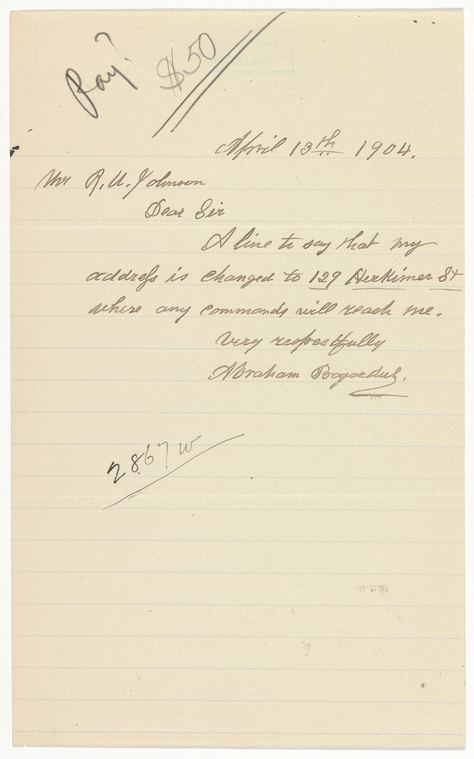 Pay? $50
April 13th 1904.
Mr R. U. Johnson
Dear Sir
A line to say that my
address is changed to 129 Herkimer St
where any commands will reach me.
Very respectfully
Abraham Bogardus.
2867 w